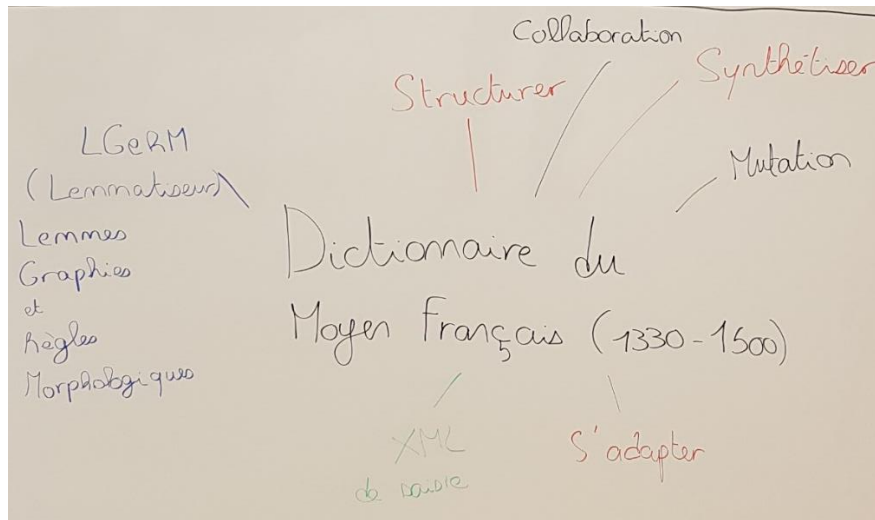 Collaboration
Structurer
Synthétiser
Mutation
LGeRM
(Lemmatiseur)
Lemmes
Graphies
et
Règles
Morphologiques
Dictionnaire du
Moyen Français (1330-1500)
XML
de saisie
S'adapter